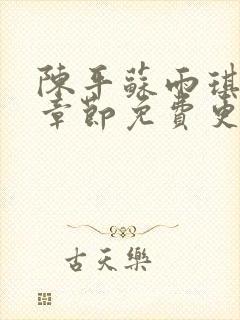 陳平蘇雨琪
章節免費更
古天樂